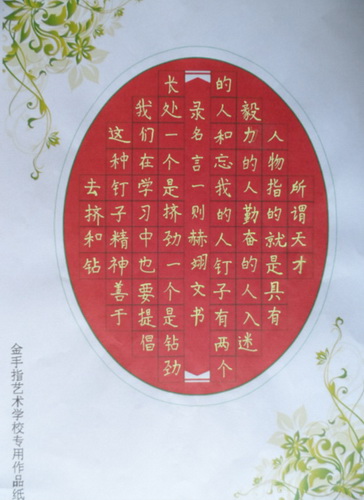 所谓天才
人物指的就是具有
毅力的人勤奋的人入迷
的人和忘我的人钉子有两个
录名言一则赫翊文书
长处一个是挤劲一个是钻劲
我们在学习中也要提倡
这种钉子精神善于
去挤和钻
金手指艺术学校专用作品纸